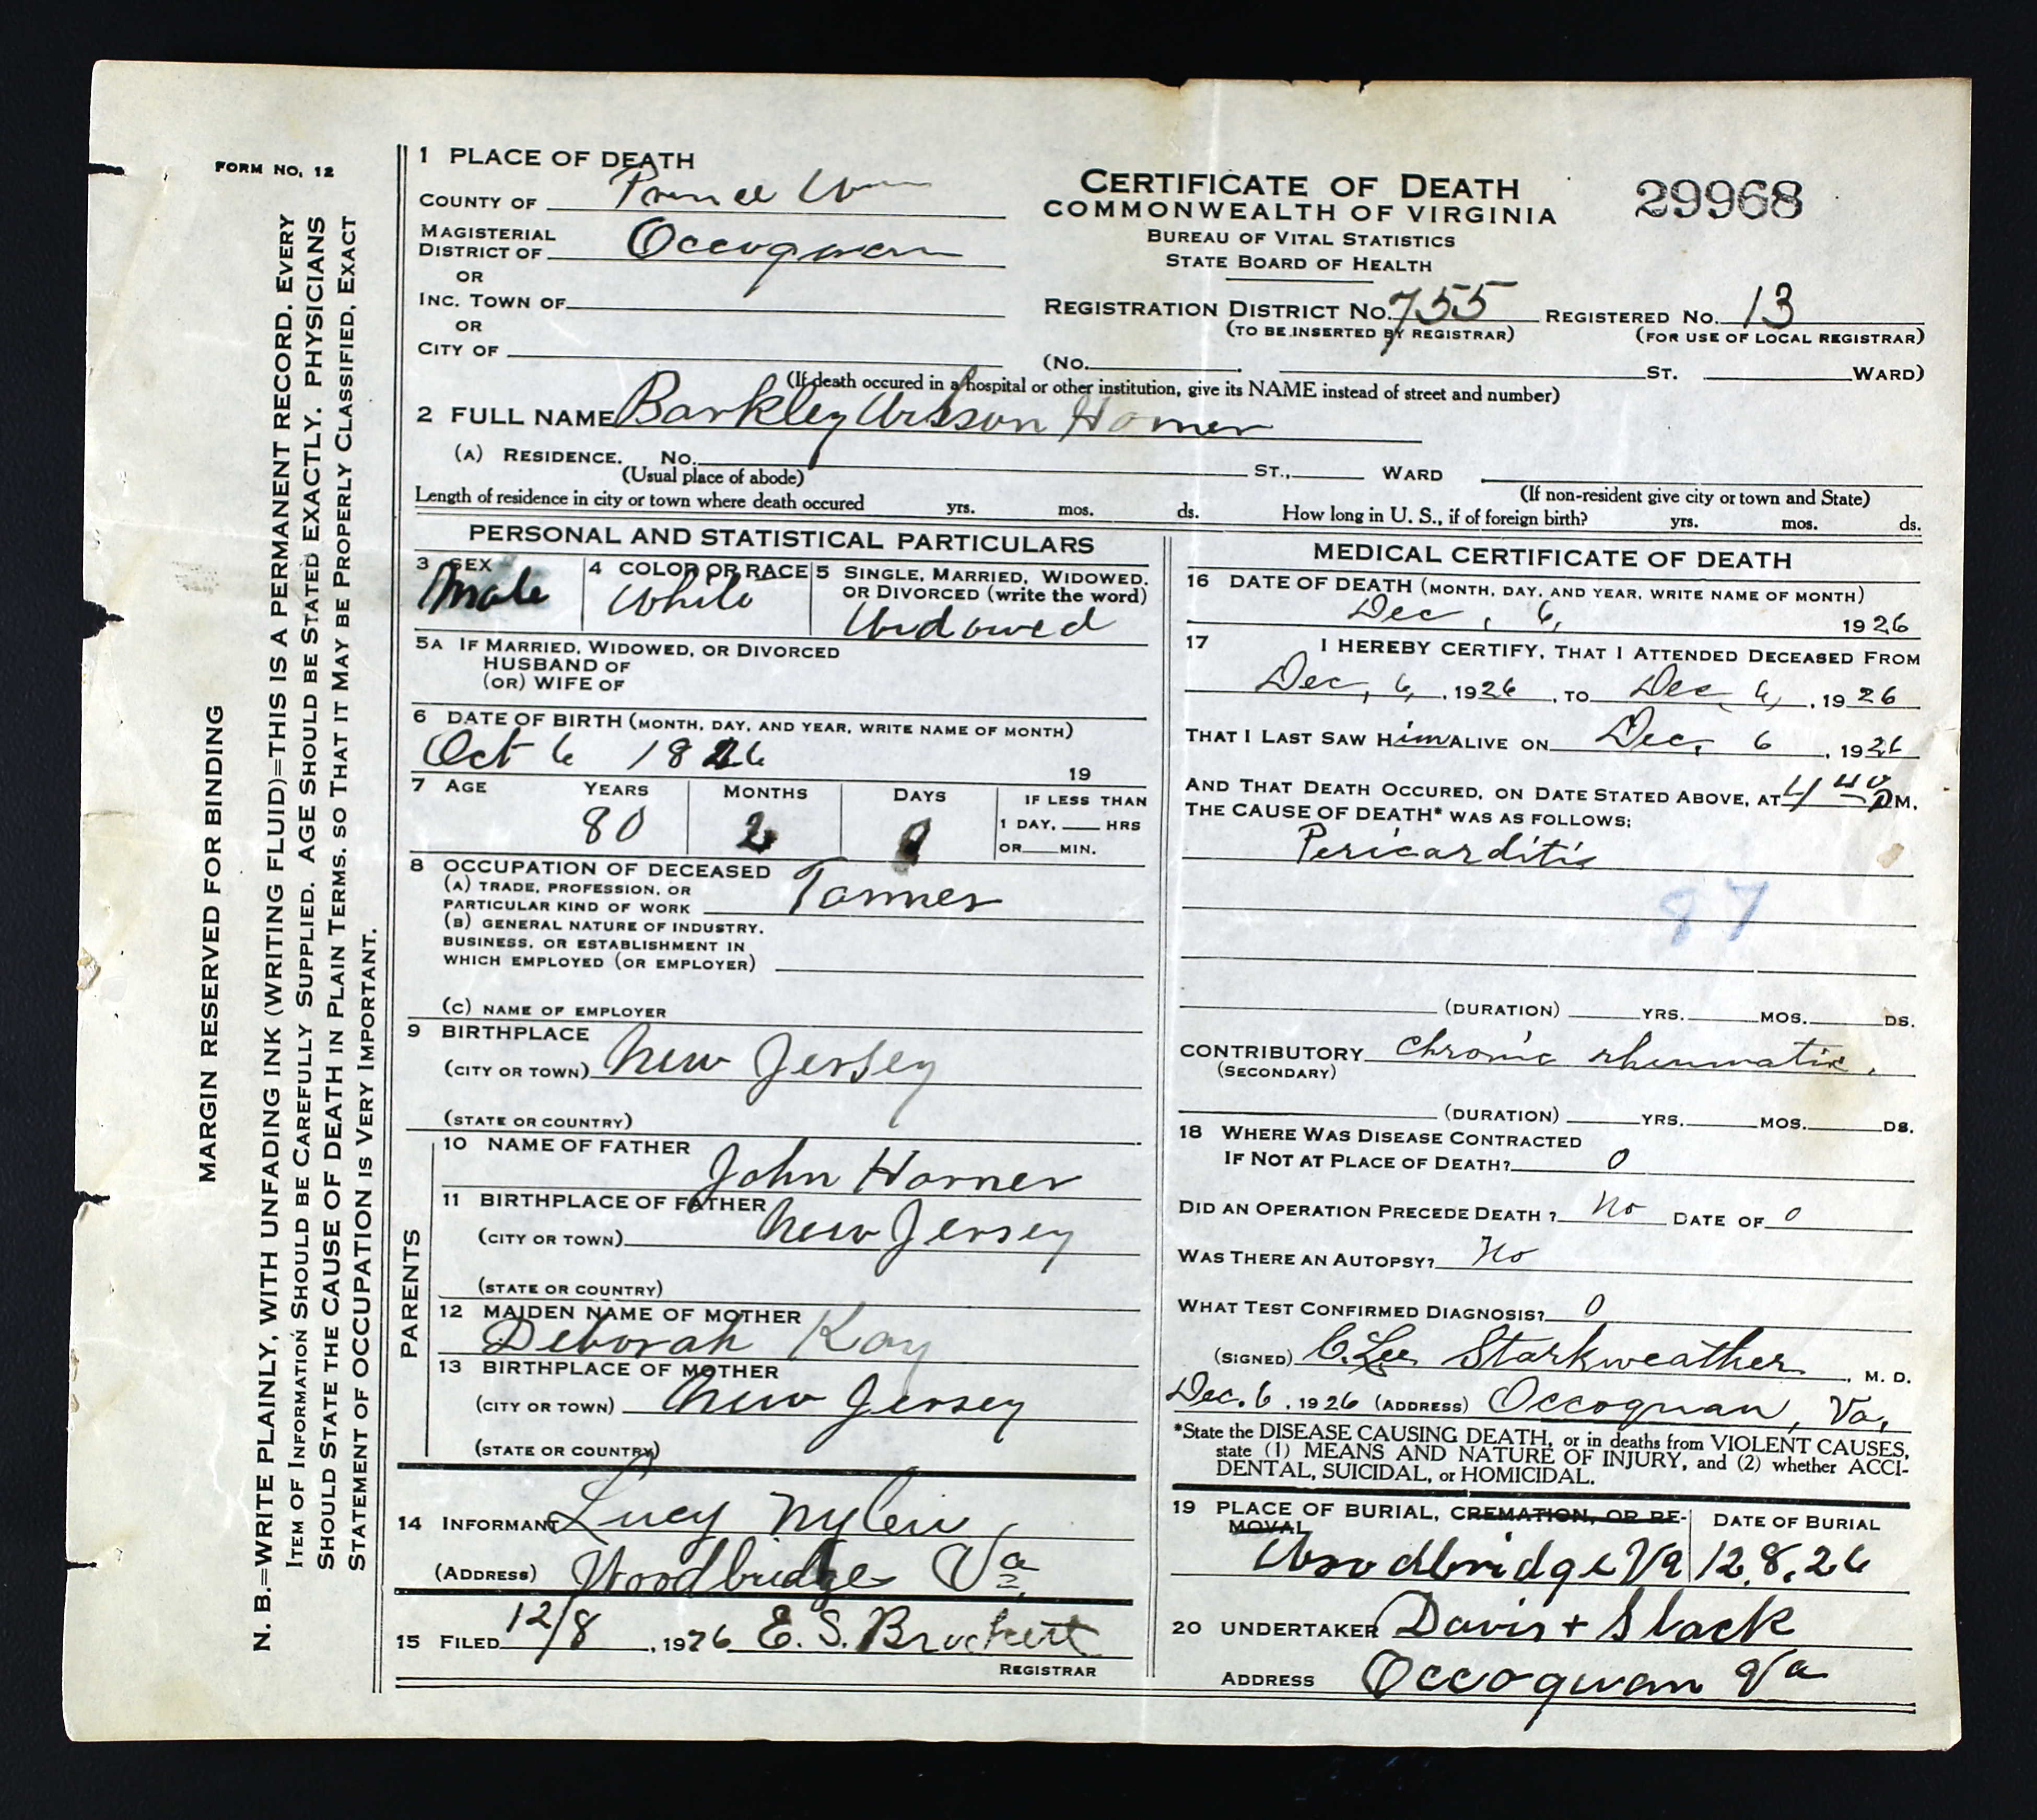 FORM NO. 12
MARGIN RESERVED FOR BINDING
N. B.=WRITE PLAINLY, WITH UNFADING INK (WRITING FLUID)=THIS IS A PERMANENT RECORD. EVERY
ITEM OF INFORMATION SHOULD BE CAREFULLY SUPPLIED. AGE SHOULD BE STATED EXACTLY. PHYSICIANS
SHOULD STATE THE CAUSE OF DEATH IN PLAIN TERMS. SO THAT IT MAY BE PROPERLY CLASSIFIED, EXACT
STATEMENT OF OCCUPATION IS VERY IMPORTANT.
CERTIFICATE OF DEATH
COMMONWEALTH OF VIRGINIA
BUREAU OF VITAL STATISTICS
STATE BOARD OF HEALTH
29968
1 PLACE OF DEATH
COUNTY OF Prince Wm
MAGISTERIAL
DISTRICT OF Occoquan
OR
INC. TOWN OF
OR
CITY OF
REGISTRATION DISTRICT NO. 755 REGISTERED NO. 13
(TO BE INSERTED BY REGISTRAR) (FOR USE OF LOCAL REGISTRAR)
(NO. ST. WARD)
(If death occured in a hospital or other institution, give its NAME instead of street and number)
2 FULL NAME Barkley Horner
(A) RESIDENCE. NO. ST., WARD
(Usual place of abode) (If non-resident give city or town and State)
Length of residence in city or town where death occured yrs. mos. ds. How long in U. S., if of foreign birth? yrs. mos. ds.
PERSONAL AND STATISTICAL PARTICULARS
3 SEX
Male
4 COLOR OR RACE
White
5 SINGLE, MARRIED, WIDOWED.
OR DIVORCED (write the word)
Widowed
5A IF MARRIED, WIDOWED, OR DIVORCED
HUSBAND OF
(OR) WIFE OF
6 DATE OF BIRTH (MONTH, DAY, AND YEAR, WRITE NAME OF MONTH)
Oct 6 19
7 AGE YEARS MONTHS DAYS IF LESS THAN
80 2 1 DAY, HRS
OR MIN.
8 OCCUPATION OF DECEASED
(A) TRADE, PROFESSION, OR
PARTICULAR KIND OF WORK
(B) GENERAL NATURE OF INDUSTRY.
BUSINESS, OR ESTABLISHMENT IN
WHICH EMPLOYED (OR EMPLOYER)
(C) NAME OF EMPLOYER
9 BIRTHPLACE
(CITY OR TOWN) New Jersey
(STATE OR COUNTRY)
PARENTS
10 NAME OF FATHER
John Horner
11 BIRTHPLACE OF FATHER
(CITY OR TOWN) New Jersey
(STATE OR COUNTRY)
12 MAIDEN NAME OF MOTHER
Deborah Kay
13 BIRTHPLACE OF MOTHER
(CITY OR TOWN) New Jersey
(STATE OR COUNTRY)
14 INFORMANT Lucy
(ADDRESS) Woodbridge Va
15 FILED 12/8, 1926 E. S. Brockett
REGISTRAR
MEDICAL CERTIFICATE OF DEATH
16 DATE OF DEATH (MONTH, DAY, AND YEAR, WRITE NAME OF MONTH)
Dec, 6, 1926
17 I HEREBY CERTIFY, THAT I ATTENDED DECEASED FROM
Dec, 6, 1926, TO Dec, 6, 1926
THAT I LAST SAW Him ALIVE ON Dec. 6, 1926
AND THAT DEATH OCCURED, ON DATE STATED ABOVE, AT 4 40 PM.
THE CAUSE OF DEATH* WAS AS FOLLOWS:
Pericarditis
87
(DURATION) YRS. MOS. DS.
CONTRIBUTORY Chronic rheumatic.
(SECONDARY)
(DURATION) YRS. MOS. DS.
18 WHERE WAS DISEASE CONTRACTED
IF NOT AT PLACE OF DEATH? 0
DID AN OPERATION PRECEDE DEATH? No DATE OF 0
WAS THERE AN AUTOPSY? No
WHAT TEST CONFIRMED DIAGNOSIS? 0
(SIGNED) C. Lee Starkweather, M. D.
Dec. 6, 1926 (ADDRESS) Occoquan, Va,
*State the DISEASE CAUSING DEATH, or in deaths from VIOLENT CAUSES,
state (1) MEANS AND NATURE OF INJURY, and (2) whether ACCI-
DENTAL, SUICIDAL, or HOMICIDAL.
19 PLACE OF BURIAL, CREMATION, OR RE-
MOVAL
DATE OF BURIAL
Woodbridge Va 12.8.26
20 UNDERTAKER Davis + Slack
ADDRESS Occoquan Va